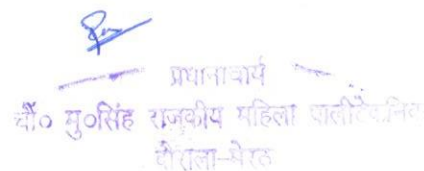 प्रधानाचार्य
चौ० मु०सिंह राजकीय महिला पालीटेकनिक
दौराला-मेरठ